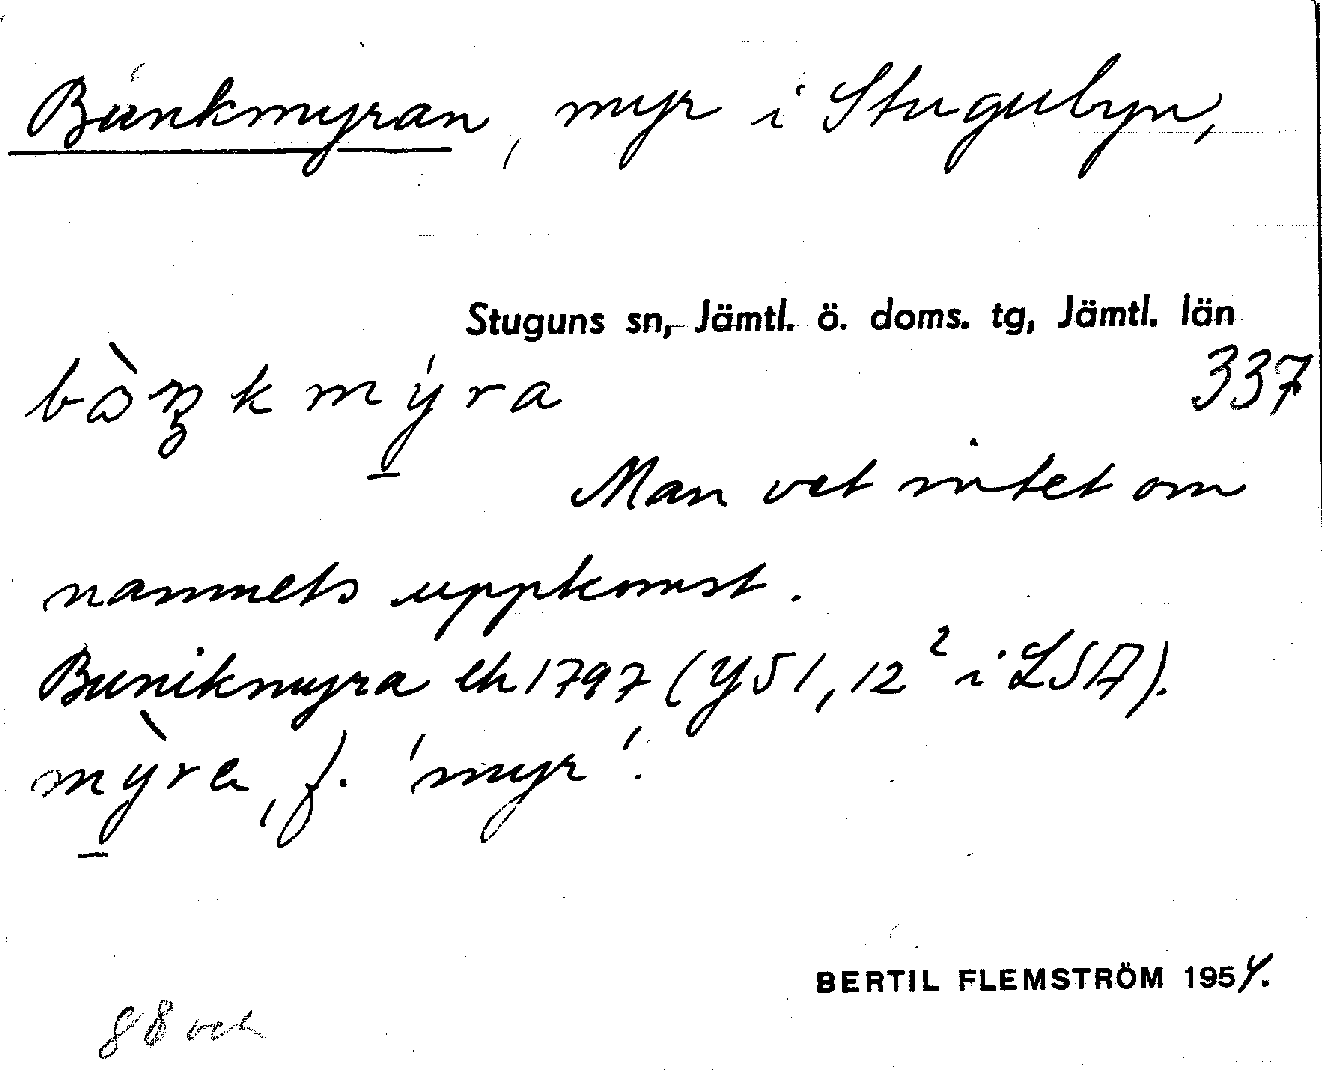 Bunkmyran, myr i Stugubyn,
Stuguns sn, Jämtl. ö. doms. tg, Jämtl. län
337
Man vet intet om
namnets uppkomst.
Bunikmyra eh 1797 (Y51, 12² i LSA).
mỳra, f. 'myr'.
BERTIL FLEMSTRÖM 1954.